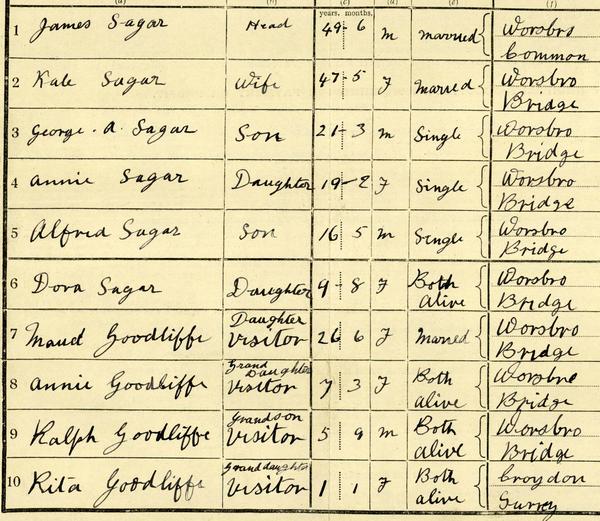 (a) (b) (c) (d) (e) (f)
years. months.
1 James Sagar Head 49-6 M Married { Worsbro
Common
2 Kate Sagar Wife 47-5 F Married { Worsbro
Bridge
3 George. A. Sagar Son 21-3 M Single { Worsbro
Bridge
4 Annie Sagar Daughter 19-2 F Single { Worsbro
Bridge
5 Alfred Sagar Son 16 5 M Single { Worsbro
Bridge
6 Dora Sagar Daughter 9-8 F Both { Worsbro
alive Bridge
Daughter
7 Maud Goodliffe Visitor 26 6 F Married { Worsbro
Bridge
Grand
Daughter
8 Annie Goodliffe Visitor 7 3 F Both { Worsbro
alive Bridge
Grandson
9 Ralph Goodliffe Visitor 5 9 M Both { Worsbro
alive Bridge
Grand daughter
10 Rita Goodliffe Visitor 1 1 F Both { Croydon
alive Surrey